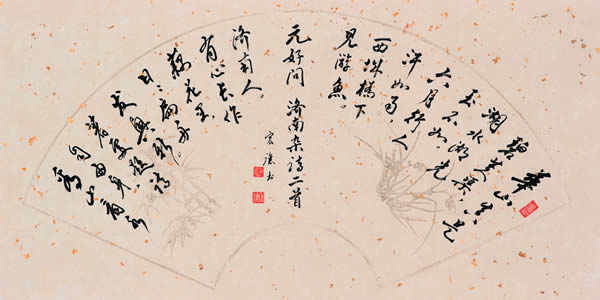 華山真是
碧芙蕖
湖水湖光
玉不如
六月行人
汗如雨
西城橋下
見游魚。
元好问 济南杂诗二首
看山看水
自由身
著处題詩
发興新
日日扁舟
藕花里
有心長作
济南人